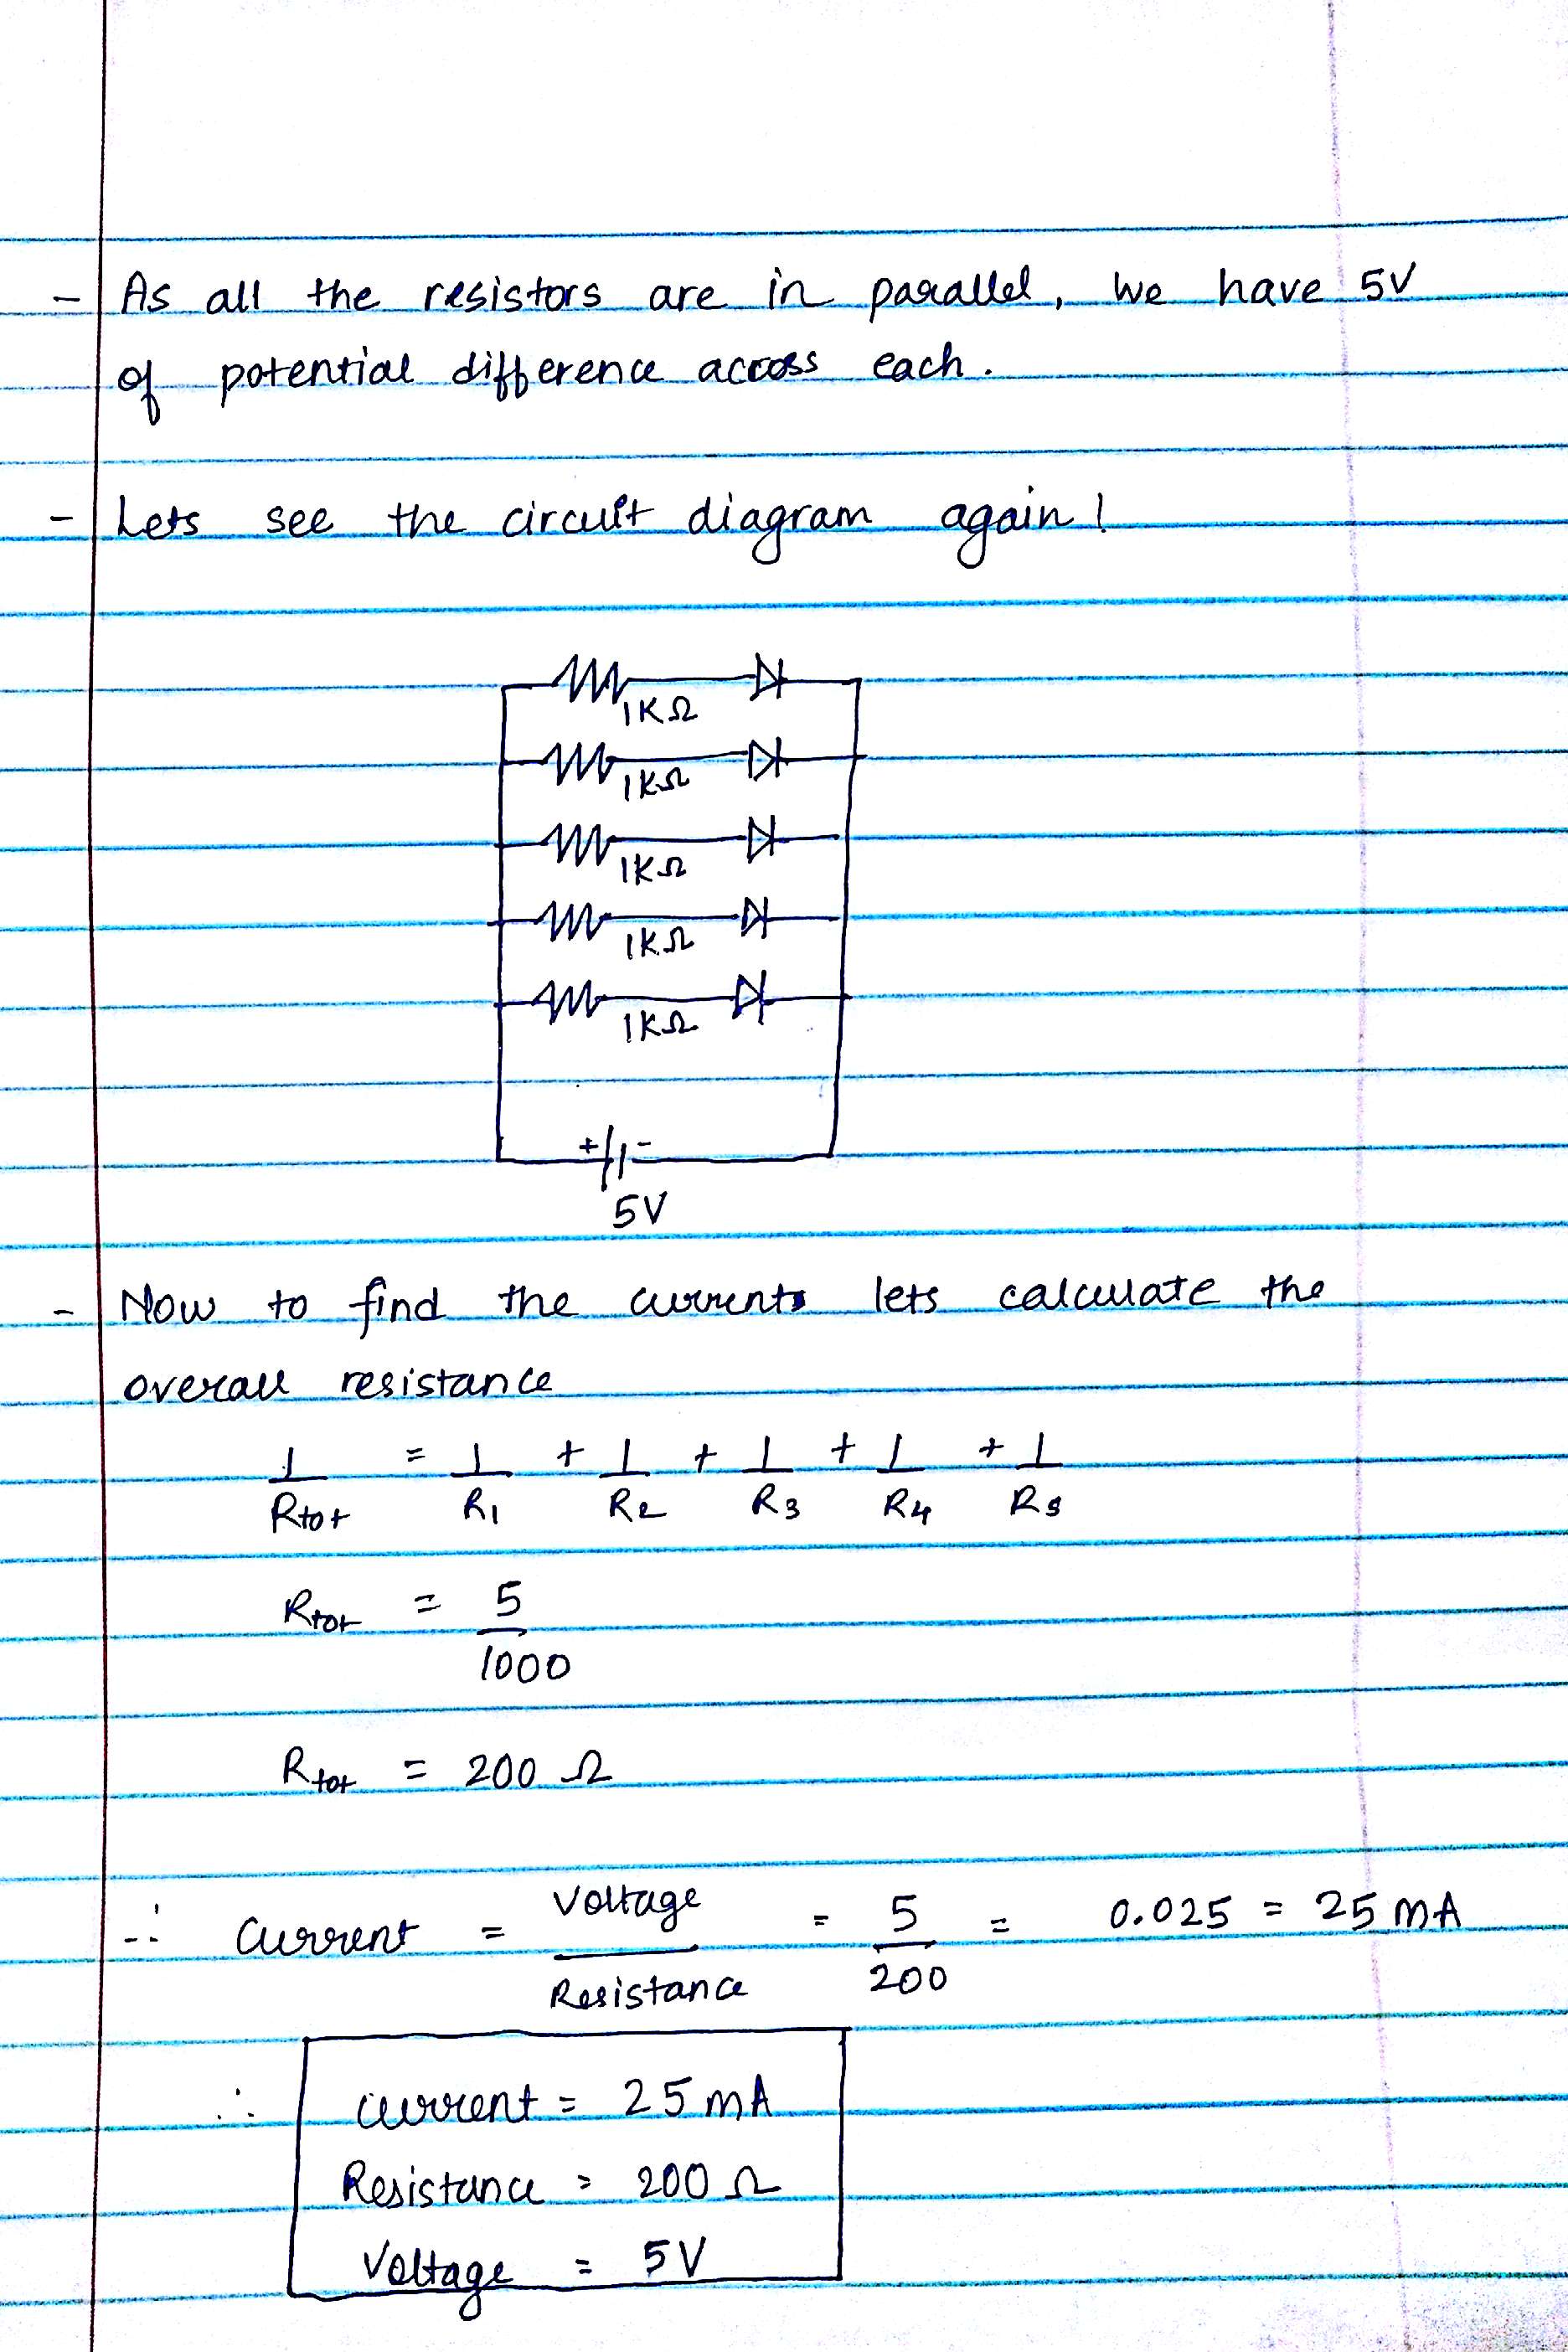 - As all the resistors are in parallel, we have 5V
of potential difference across each.
- Lets see the circuit diagram again!
1KΩ
1KΩ
1KΩ
1KΩ
1KΩ
+ -
5V
- Now to find the currents lets calculate the
overall resistance
1/Rtot = 1/R1 + 1/R2 + 1/R3 + 1/R4 + 1/R5
Rtot = 5/1000
Rtot = 200 Ω
∴ Current = Voltage/Resistance = 5/200 = 0.025 = 25 mA
∴ current = 25 mA
Resistance = 200 Ω
Voltage = 5V